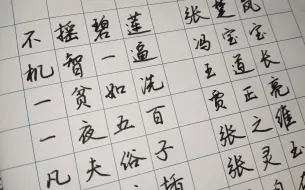 不摇碧莲 张楚岚
机智一逼 冯宝宝
一贫如洗 王道长
一夜五百 贾正亮
凡夫俗子 张之维
张灵玉